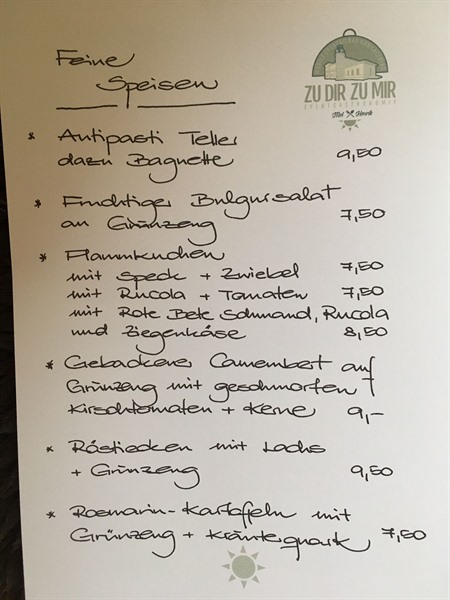 Feine
Speisen
ZU DIR ZU MIR
EVENTGASTRONOMIE
* Antipasti Teller
dazu Baguette 9,50
* Fruchtiger Bulgursalat
an Grünzeug 7,50
* Flammkuchen
mit Speck + Zwiebel 7,50
mit Rucola + Tomaten 7,50
mit Rote Bete Schmand, Rucola
und Ziegenkäse 8,50
* Gebackener Camembert auf
Grünzeug mit geschmorten
Kirschtomaten + Kerne 9,-
* Röstiecken mit Lachs
+ Grünzeug 9,50
* Rosmarin-Kartoffeln mit
Grünzeug + Kräuterquark 7,50